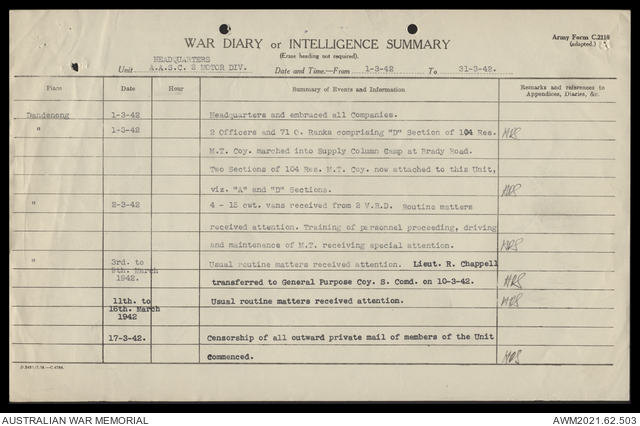 Army Form C.2118
(adapted.)
WAR DIARY or INTELLIGENCE SUMMARY
(Erase heading not required).
HEADQUARTERS
Unit A.A.S.C. 2 MOTOR DIV. Date and Time—From 1-3-42 To 31-3-42.
Place Date Hour Summary of Events and Information Remarks and references to
Appendices, Diaries, &c.
Dandenong 1-3-42 Headquarters and embraced all Companies.
" 1-3-42 2 Officers and 71 O. Ranks comprising "D" Section of 104 Res. HRS
M.T. Coy. marched into Supply Column Camp at Brady Road.
Two Sections of 104 Res. M.T. Coy. now attached to this Unit,
viz. "A" and "D" Sections. HRS
" 2-3-42 4 - 15 cwt. vans received from 2 V.R.D. Routine matters
received attention. Training of personnel proceeding, driving
and maintenance of M.T. receiving special attention. HRS
" 3rd. to Usual routine matters received attention. Lieut. R. Chappell
9th. March
1942. transferred to General Purpose Coy. S. Comd. on 10-3-42. HRS
11th. to Usual routine matters received attention. HRS
16th. March
1942
17-3-42. Censorship of all outward private mail of members of the Unit
commenced. HRS
AUSTRALIAN WAR MEMORIAL AWM2021.62.503